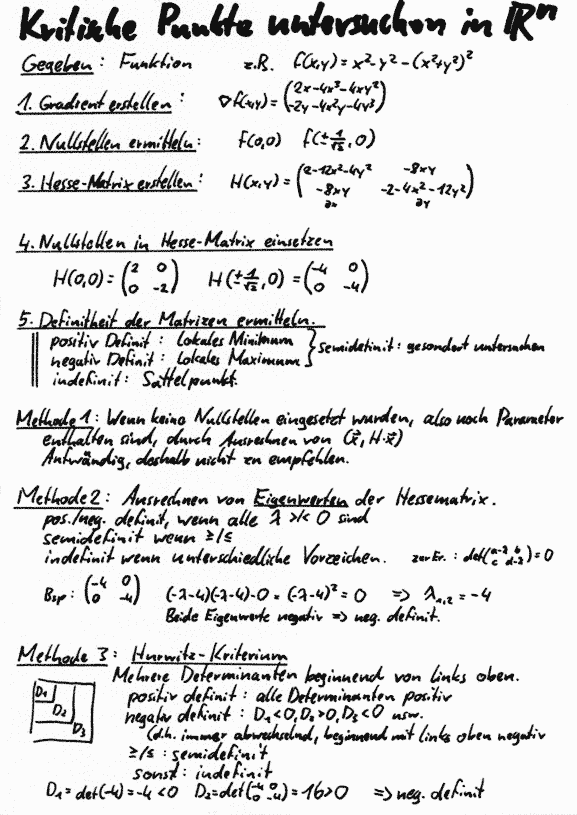 Kritische Punkte untersuchen in ℝⁿ
Gegeben: Funktion z.B. f(x,y) = x²-y²-(x²+y²)²
1. Gradient erstellen: ∇f(x,y) = (2x-4x³-4xy² / -2y-4x²y-4y³)
2. Nullstellen ermitteln: f(0,0) f(±1/√2, 0)
3. Hesse-Matrix erstellen: H(x,y) = (2-12x²-4y² -8xy / -8xy -2-4x²-12y²)
∂x ∂y
4. Nullstellen in Hesse-Matrix einsetzen
H(0,0) = (2 0 / 0 -2) H(±1/√2, 0) = (-4 0 / 0 -4)
5. Definitheit der Matrizen ermitteln.
positiv Definit: lokales Minimum
negativ Definit: lokales Maximum } Semidefinit: gesondert untersuchen
indefinit: Sattelpunkt
Methode 1: Wenn keine Nullstellen eingesetzt wurden, also noch Parameter
enthalten sind, durch Ausrechnen von (x⃗, H·x⃗)
Aufwändig, deshalb nicht zu empfehlen.
Methode 2: Ausrechnen von Eigenwerten der Hessematrix.
pos./neg. definit, wenn alle λ >/< 0 sind
semidefinit wenn ≥/≤
indefinit wenn unterschiedliche Vorzeichen. zur Er.: det(a-λ b / c d-λ) = 0
Bsp: (-4 0 / 0 -4) (-λ-4)(-λ-4)-0 = (-λ-4)² = 0 => λ₁,₂ = -4
Beide Eigenwerte negativ => neg. definit.
Methode 3: Hurwitz-Kriterium
Mehrere Determinanten beginnend von links oben.
D₁ D₂ D₃
positiv definit: alle Determinanten positiv
negativ definit: D₁<0, D₂>0, D₃<0 usw.
(d.h. immer abwechselnd, beginnend mit links oben negativ
≥/≤: semidefinit
sonst: indefinit
D₁ = det(-4) = -4 < 0 D₂ = det(-4 0 / 0 -4) = 16 > 0 => neg. definit